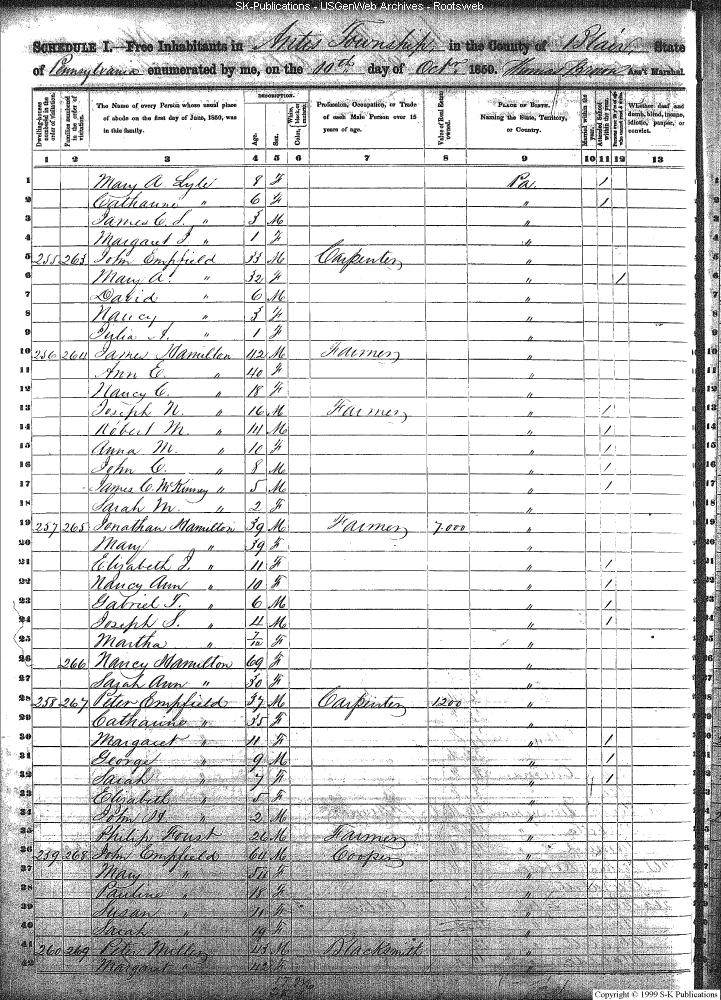 SK-Publications - USGenWeb Archives - Rootsweb
SCHEDULE I.—Free Inhabitants in Antis Township in the County of Blair State
of Pennsylvania enumerated by me, on the 10th day of Octr. 1850. Thomas Ass't Marshal.
Dwelling-houses numbered in the order of visitation. Families numbered in the order of visitation. The Name of every Person whose usual place of abode on the first day of June, 1850, was in this family. DESCRIPTION. Age. Sex. Color, White, black, or mulatto. Profession, Occupation, or Trade of each Male Person over 15 years of age. Value of Real Estate owned. PLACE OF BIRTH. Naming the State, Territory, or Country. Married within the year. Attended School within the year. Whether deaf and dumb, blind, insane, idiotic, pauper, or convict.
1 2 3 4 5 6 7 8 9 10 11 12 13
1 Mary A. Lyle 8 F Pa. / 1
2 Catharine " 6 F " / 2
3 James C. S. " 3 M " 3
4 Margaret J. " 1 F " 4
5 255 263 John Empfield 33 M Carpenter " 5
6 Mary A. " 32 F " / 6
7 David " 6 M " 7
8 Nancy " 3 F " 8
9 Julia A. " 1 F " 9
10 256 264 James Hamilton 42 M Farmer " 10
11 Ann E. " 40 F " 11
12 Nancy C. " 18 F " 12
13 Joseph N. " 16 M Farmer " / 13
14 Robert M. " 14 M " / 14
15 Anna M. " 10 F " / 15
16 John C. " 8 M " / 16
17 James C. McKinney " 5 M " / 17
18 Sarah M. " 2 F " 18
19 257 265 Jonathan Hamilton 39 M Farmer 7000 " 19
20 Mary " 39 F " 20
21 Elizabeth J. " 11 F " / 21
22 Nancy Ann " 10 F " / 22
23 Gabriel T. " 6 M " / 23
24 Joseph S. " 4 M " / 24
25 Martha " 7/12 F " 25
26 266 Nancy Hamilton 69 F " 26
27 Sarah Ann " 30 F " 27
28 258 267 Peter Empfield 37 M Carpenter 1200 " 28
29 Catharine " 35 F " 29
30 Margaret " 11 F " / 30
31 George " 9 M " / 31
32 Sarah " 7 F " / 32
33 Elizabeth " 5 F " 33
34 John H. " 2 M " 34
35 Philip Foust 26 M Farmer " 35
36 259 268 John Empfield 64 M Cooper " 36
37 Mary " 54 F " 37
38 Pauline " 18 F " 38
39 Susan " 11 F " 39
40 Sarah " 19 F " 40
41 260 269 Peter Miller 43 M Blacksmith " 41
42 Margaret " 42 F " 42
Copyright © 1999 S-K Publications